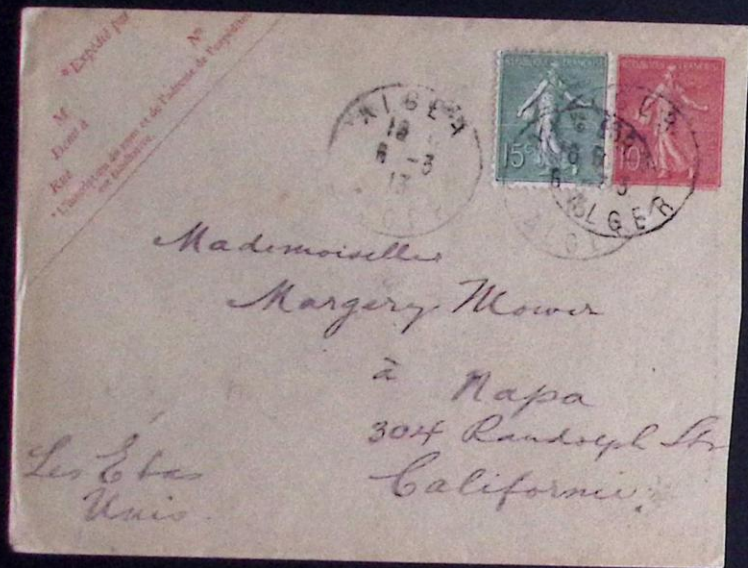 *Expédié par
N°
M
Demt à
Rue
*L'inscription du nom et de l'adresse de l'expéditeur
est facultative.
REPUBLIQUE FRANÇAISE
15c
10
ALGER
18
6 -3
13
ALGER
Mademoiselle
Margery Mower
à Napa
304 Randolph Str
Californie
Les Etas
Unis